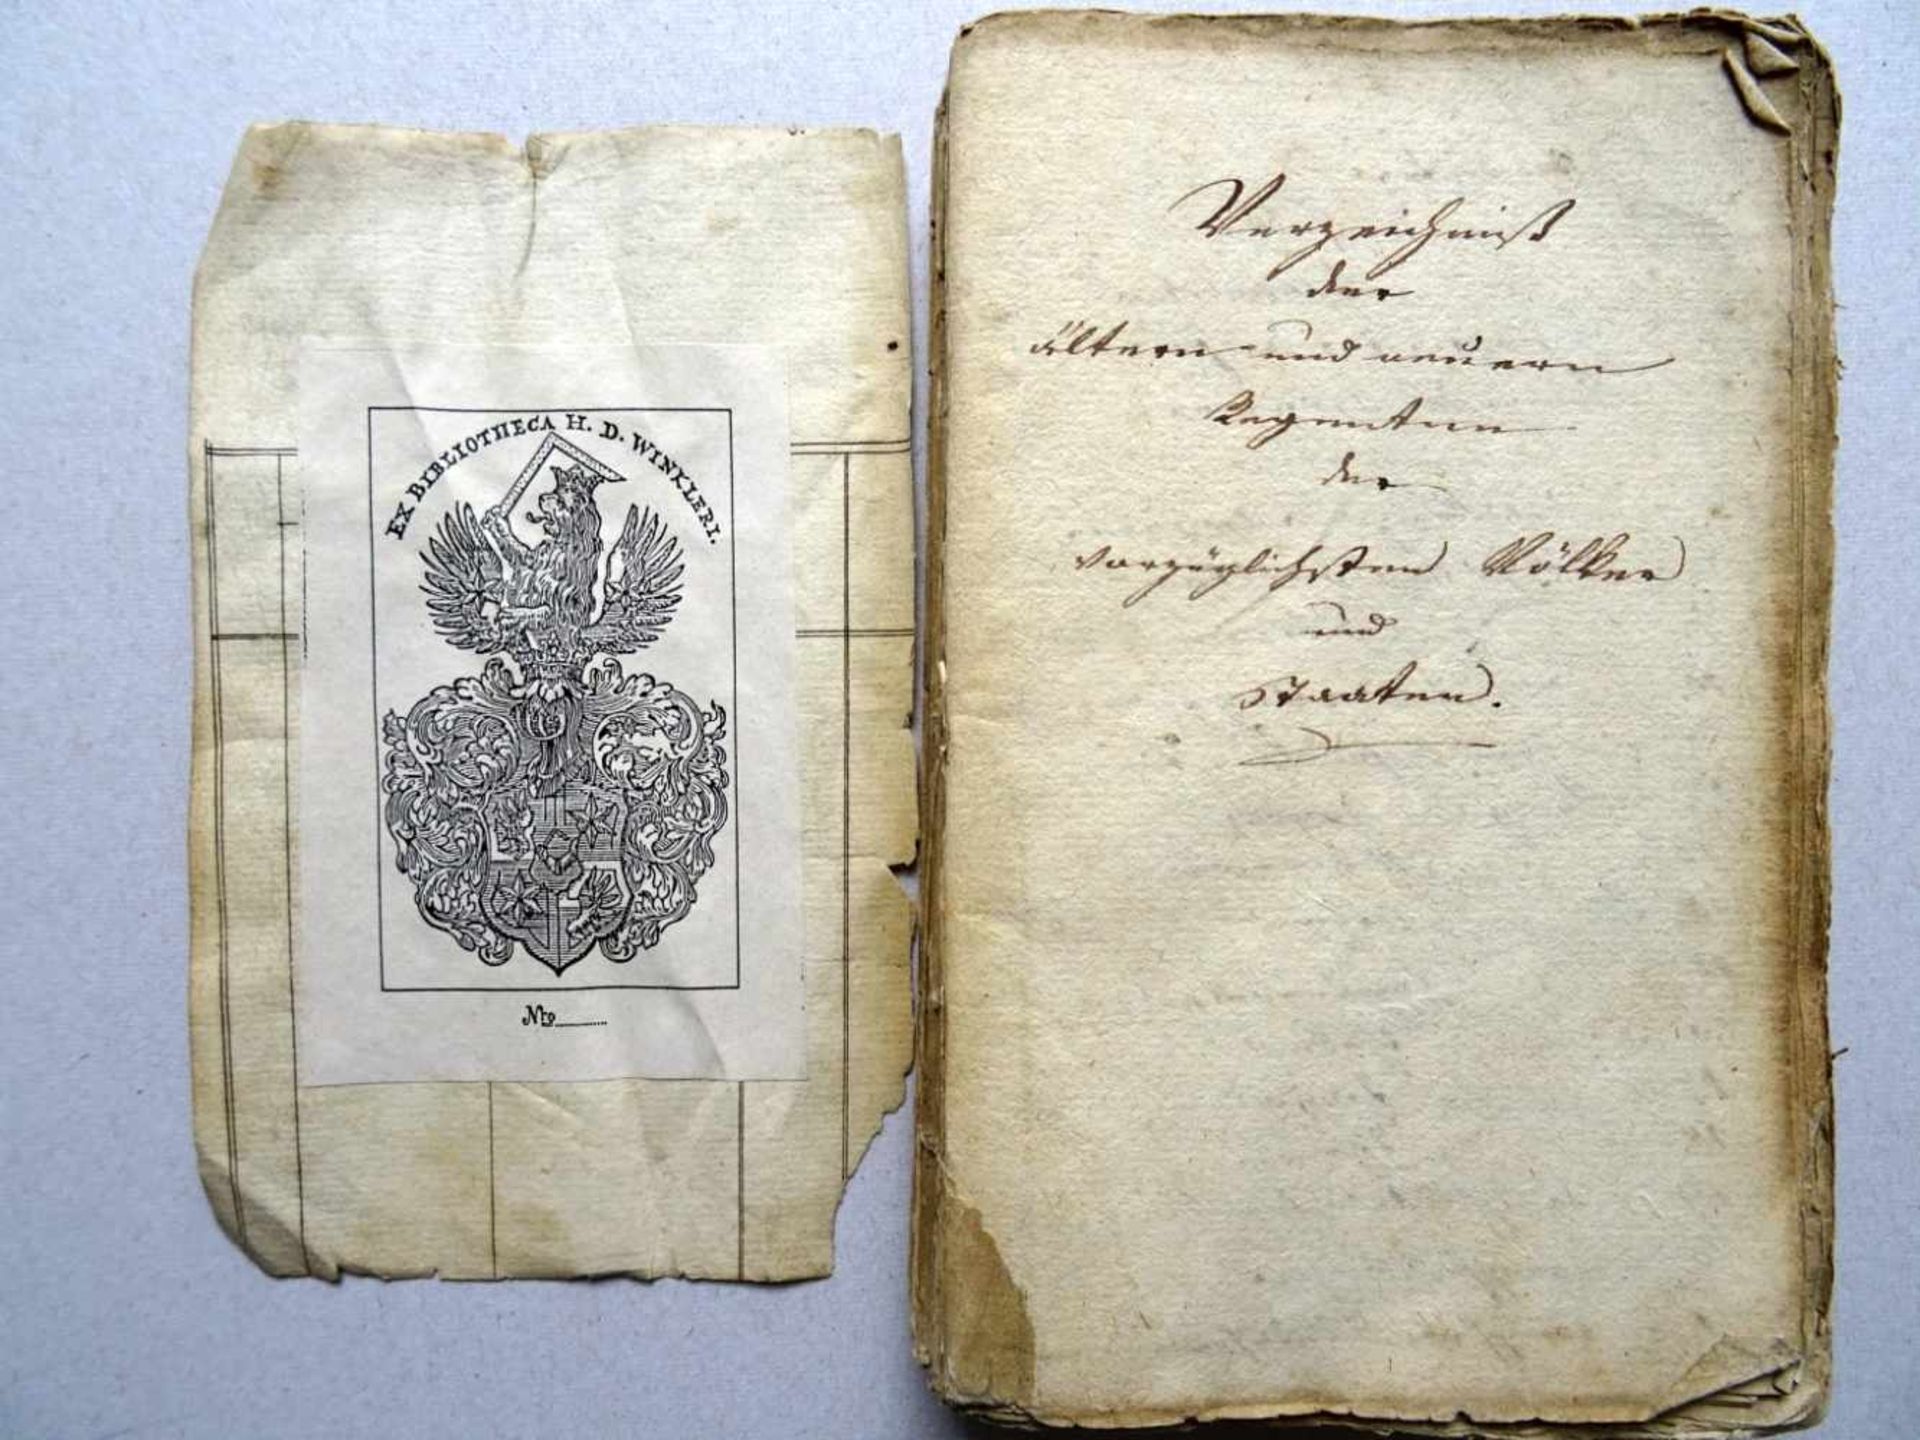 EX BIBLIOTHECA H. D. WINKLERI.
Nro..........
Verzeichniß
der
ältern und neuern
Regenten
der
vorzüglichsten Völker
und
Staaten.